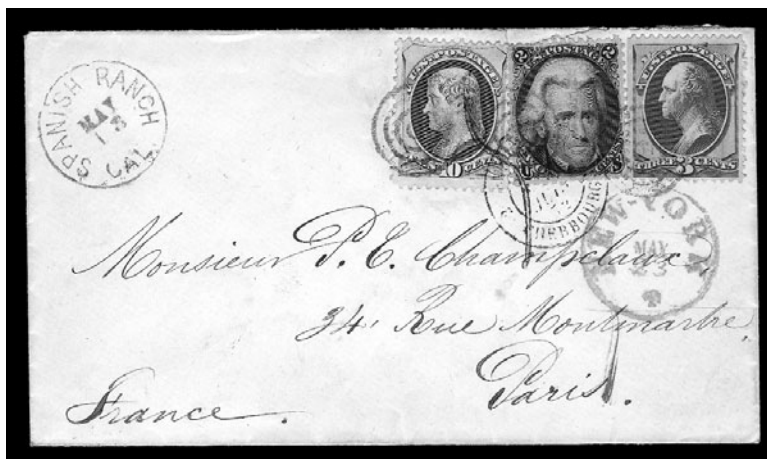 SPANISH RANCH
MAY
13
CAL.
U.S. POSTAGE
TEN 10 CENTS
2 U.S. POSTAGE 2
U.S. POSTAGE
THREE 3 CENTS
CHERBOURG
NEW-YORK
MAY
23
Monsieur P. E. Champclaux,
34, Rue Montmartre,
Paris.
France.